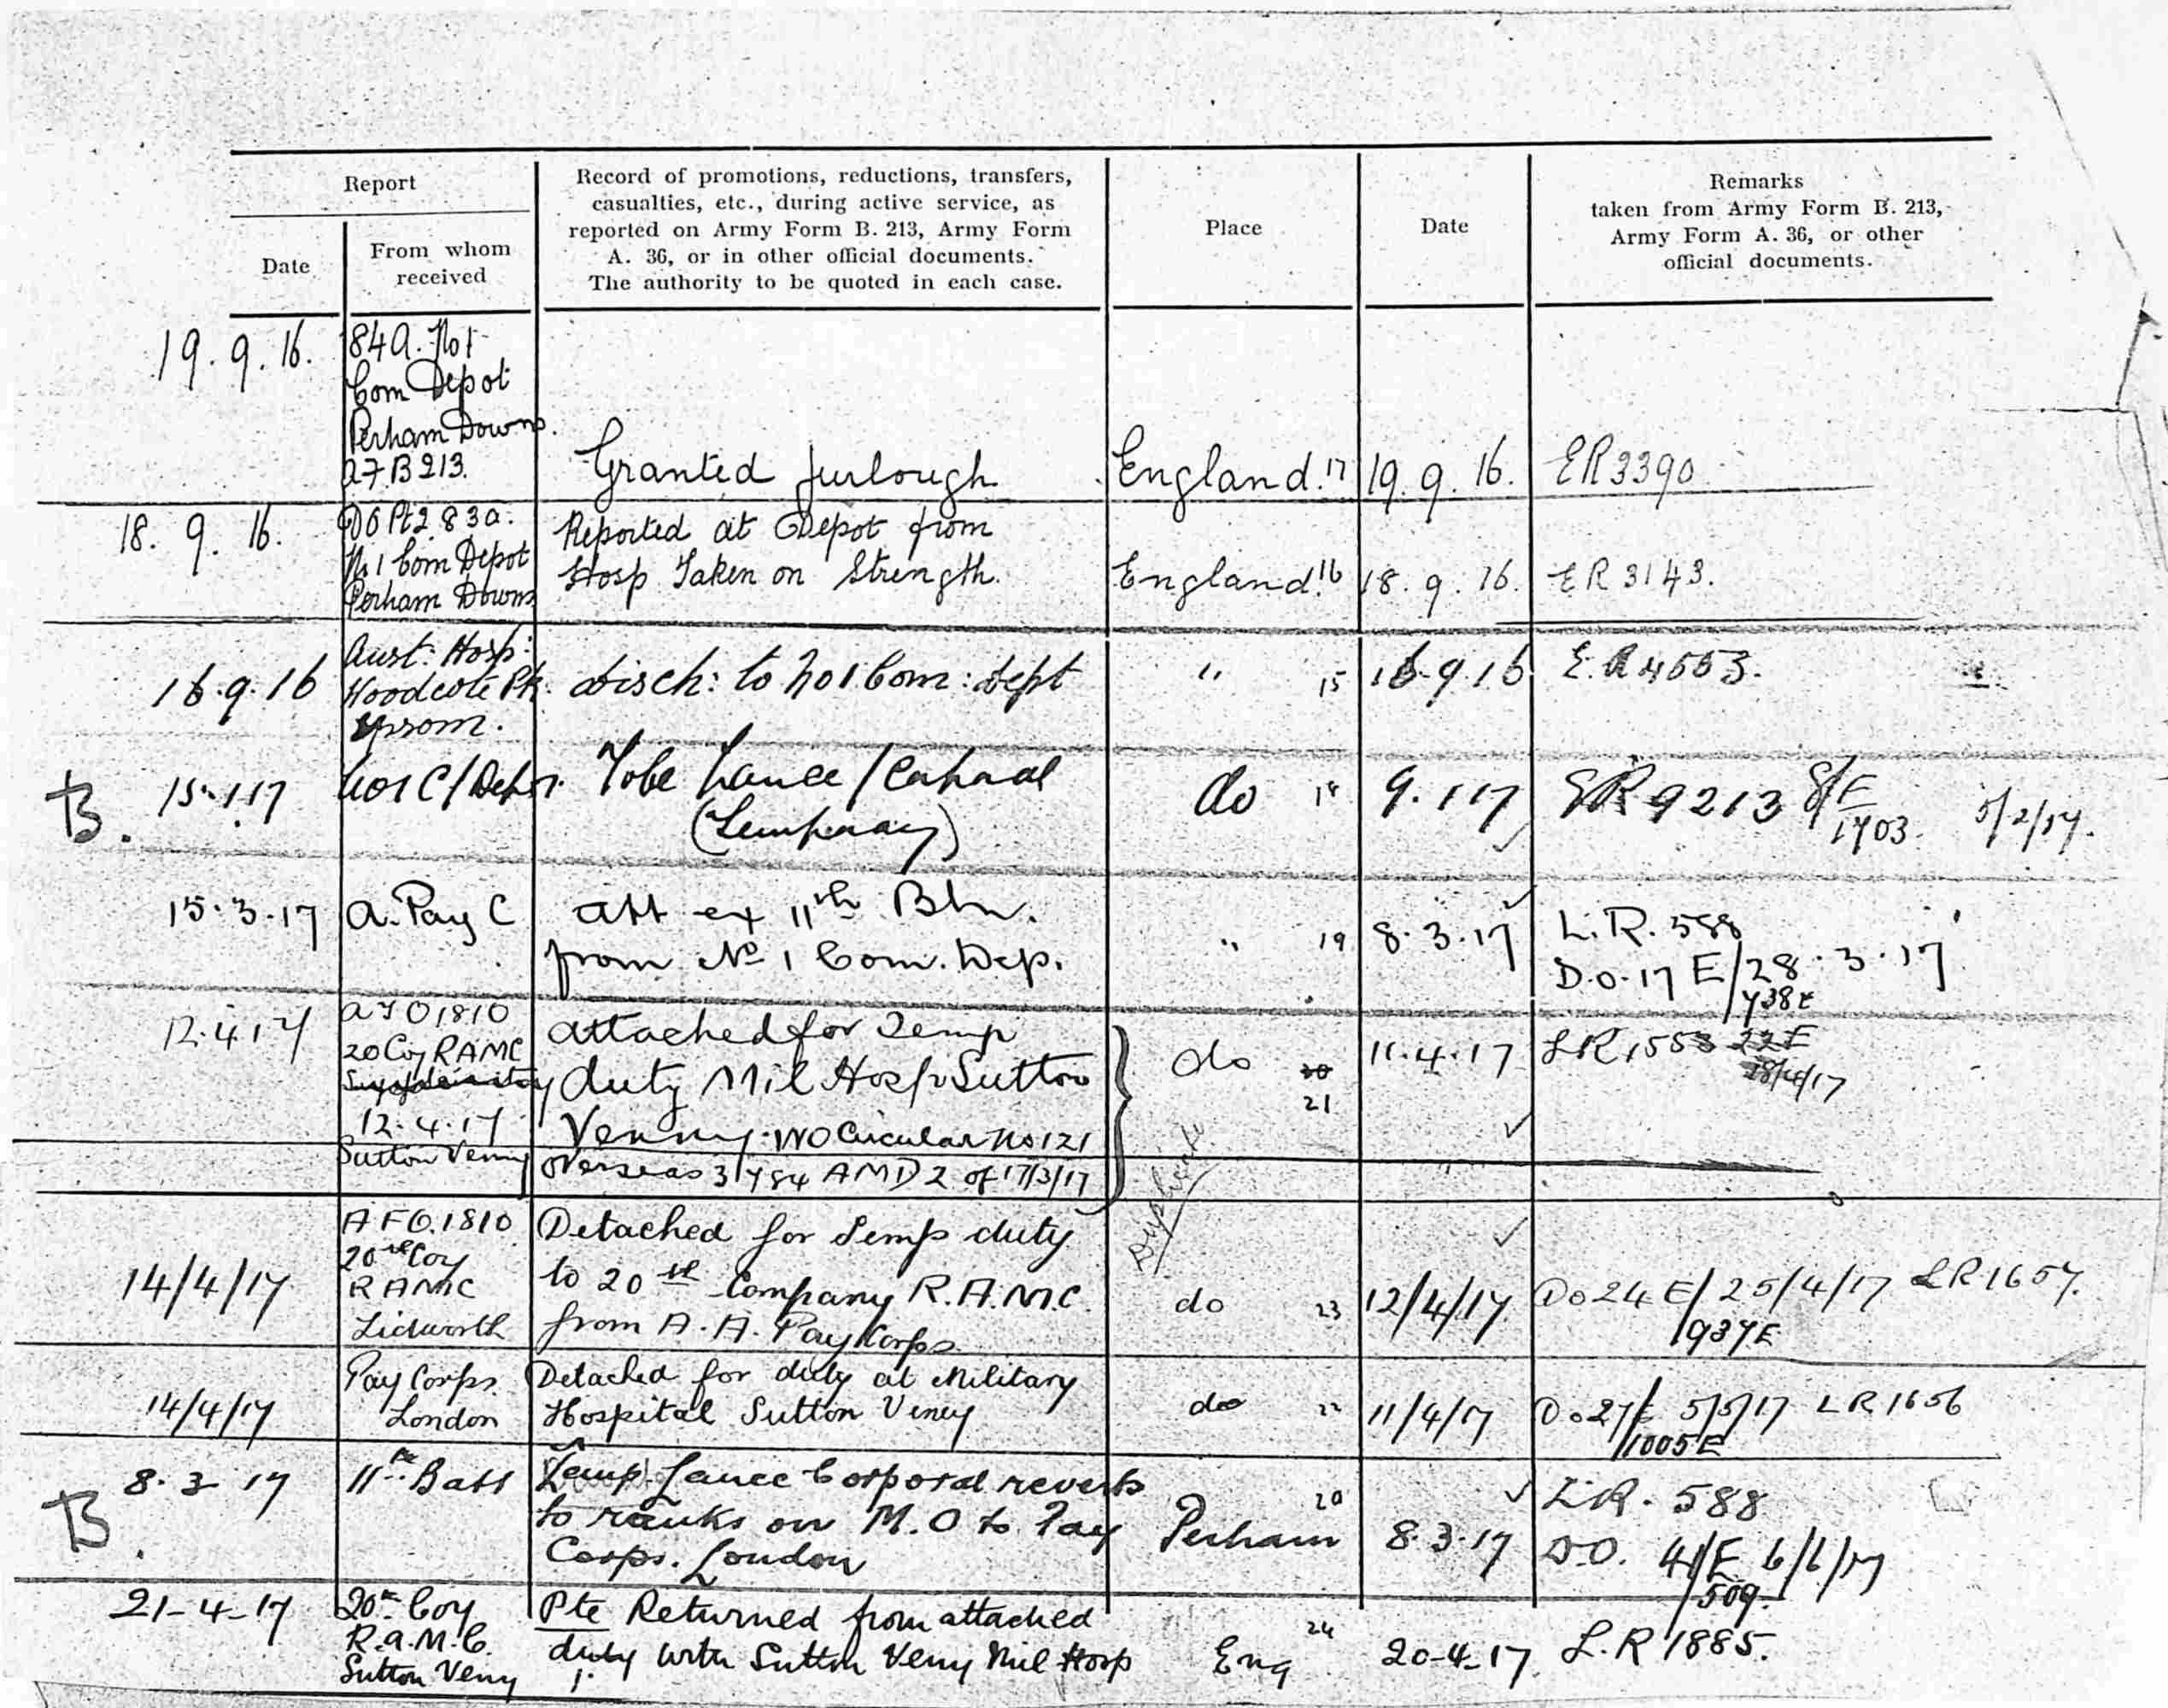 Report
Date
From whom
received
Record of promotions, reductions, transfers,
casualties, etc., during active service, as
reported on Army Form B. 213, Army Form
A. 36, or in other official documents.
The authority to be quoted in each case.
Place
Date
Remarks
taken from Army Form B. 213,
Army Form A. 36, or other
official documents.
19. 9. 16.
84A. No 1
Com Depot
Perham Downs.
A F B 213.
Granted furlough
England. 17
19. 9. 16.
ER 3390
18. 9. 16.
DO Pt 2 83a.
No 1 Com Depot
Perham Downs
Reported at Depot from
Hosp Taken on Strength.
England. 16
18. 9. 16.
ER 3143.
16.9.16
Aust: Hosp:
Woodcote Pk.
Epsom.
disch: to No 1 Com: Dept
" 15
16.9.16
E.R 4553.
B.
15.1.17
No 1 C/Depot.
To be Lance/Corporal
(Temporary)
do 18
9.1.17
ER 9213
E
1703.
5/2/17.
15.3.17
A. Pay C
att ex 11th Btn.
from No 1 Com. Dep.
" 19
8.3.17
L.R. 588
D.O. 17 E/28.3.17
738E
12.4.17
A F O 1810
20 Coy RAMC
12.4.17
Sutton Venny
attached for Temp
duty Mil Hosp Sutton
Venny. WO Circular No 121
Overseas 3784 AMD 2 of 17/3/17
do 20
21
Duplicate
11.4.17
LR 1553 22E
18/4/17
14/4/17
A F O. 1810
20th Coy
RAMC
Tidworth
Detached for Temp duty
to 20th Company R.A.M.C.
from A. A. Pay Corps.
do 23
12/4/17
Do 24 E/25/4/17 LR 1657.
937E
14/4/17
Pay Corps.
London
Detached for duty at Military
Hospital Sutton Veney
do 22
11/4/17
Do 27E 5/5/17 LR 1656
1005E
B.
8.3.17
11th Batt
Temp. Lance Corporal reverts
to ranks on M.O to Pay
Corps. London
20
Perham
8.3.17
L.R. 588
D.O. 41/E 6/6/17
509.
21-4-17
20th Coy
R.A.M.C.
Sutton Veny
Pte Returned from attached
duty with Sutton Veny Mil Hosp
24
Eng
20-4-17.
L.R 1885.